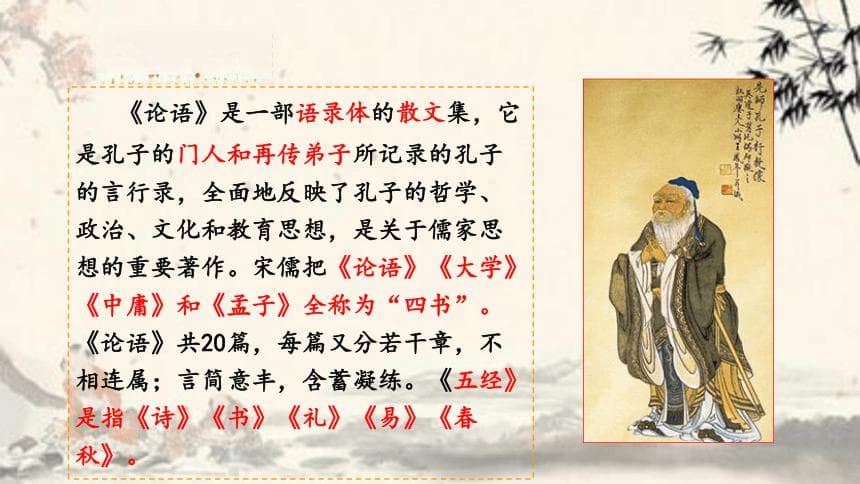 《论语》是一部语录体的散文集，它
是孔子的门人和再传弟子所记录的孔子
的言行录，全面地反映了孔子的哲学、
政治、文化和教育思想，是关于儒家思
想的重要著作。宋儒把《论语》《大学》
《中庸》和《孟子》全称为“四书”。
《论语》共20篇，每篇又分若干章，不
相连属；言简意丰，含蓄凝练。《五经》
是指《诗》《书》《礼》《易》《春
秋》。
先師孔子行教像